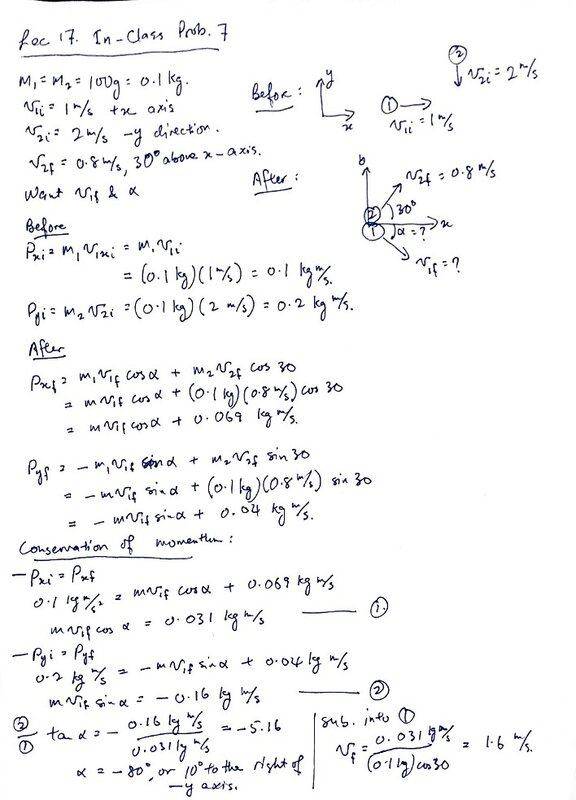 Lec 17. In-Class Prob. 7
m₁ = m₂ = 100g = 0.1 kg.
v₁ᵢ = 1 m/s +x axis
v₂ᵢ = 2 m/s -y direction.
v₂f = 0.8 m/s, 30° above x-axis.
Want v₁f & α
Before:
y
x
①
v₁ᵢ = 1 m/s
②
v₂ᵢ = 2 m/s
After:
v₂f = 0.8 m/s
②
30°
x
①
α = ?
v₁f = ?
Before
Pxi = m₁ v₁xi = m₁ v₁ᵢ
= (0.1 kg)(1 m/s) = 0.1 kg m/s.
Pyi = m₂ v₂ᵢ = (0.1 kg)(2 m/s) = 0.2 kg m/s.
After
Pxf = m₁v₁f cos α + m₂v₂f cos 30
= m v₁f cos α + (0.1 kg)(0.8 m/s) cos 30
= m v₁f cos α + 0.069 kg m/s.
Pyf = - m₁v₁f sin α + m₂v₂f sin 30
= - m v₁f sin α + (0.1 kg)(0.8 m/s) sin 30
= - m v₁f sin α + 0.04 kg m/s.
Conservation of momentum:
- Pxi = Pxf
0.1 kg m/s² = m v₁f cos α + 0.069 kg m/s
m v₁f cos α = 0.031 kg m/s ①
- Pyi = Pyf
0.2 kg m/s = - m v₁f sin α + 0.04 kg m/s
m v₁f sin α = - 0.16 kg m/s ②
②/① tan α = - 0.16 kg m/s / 0.031 kg m/s = -5.16
α = -80°, or 10° to the right of
-y axis.
sub. into ①
vf = 0.031 kg m/s / (0.1 kg) cos 30 = 1.6 m/s.